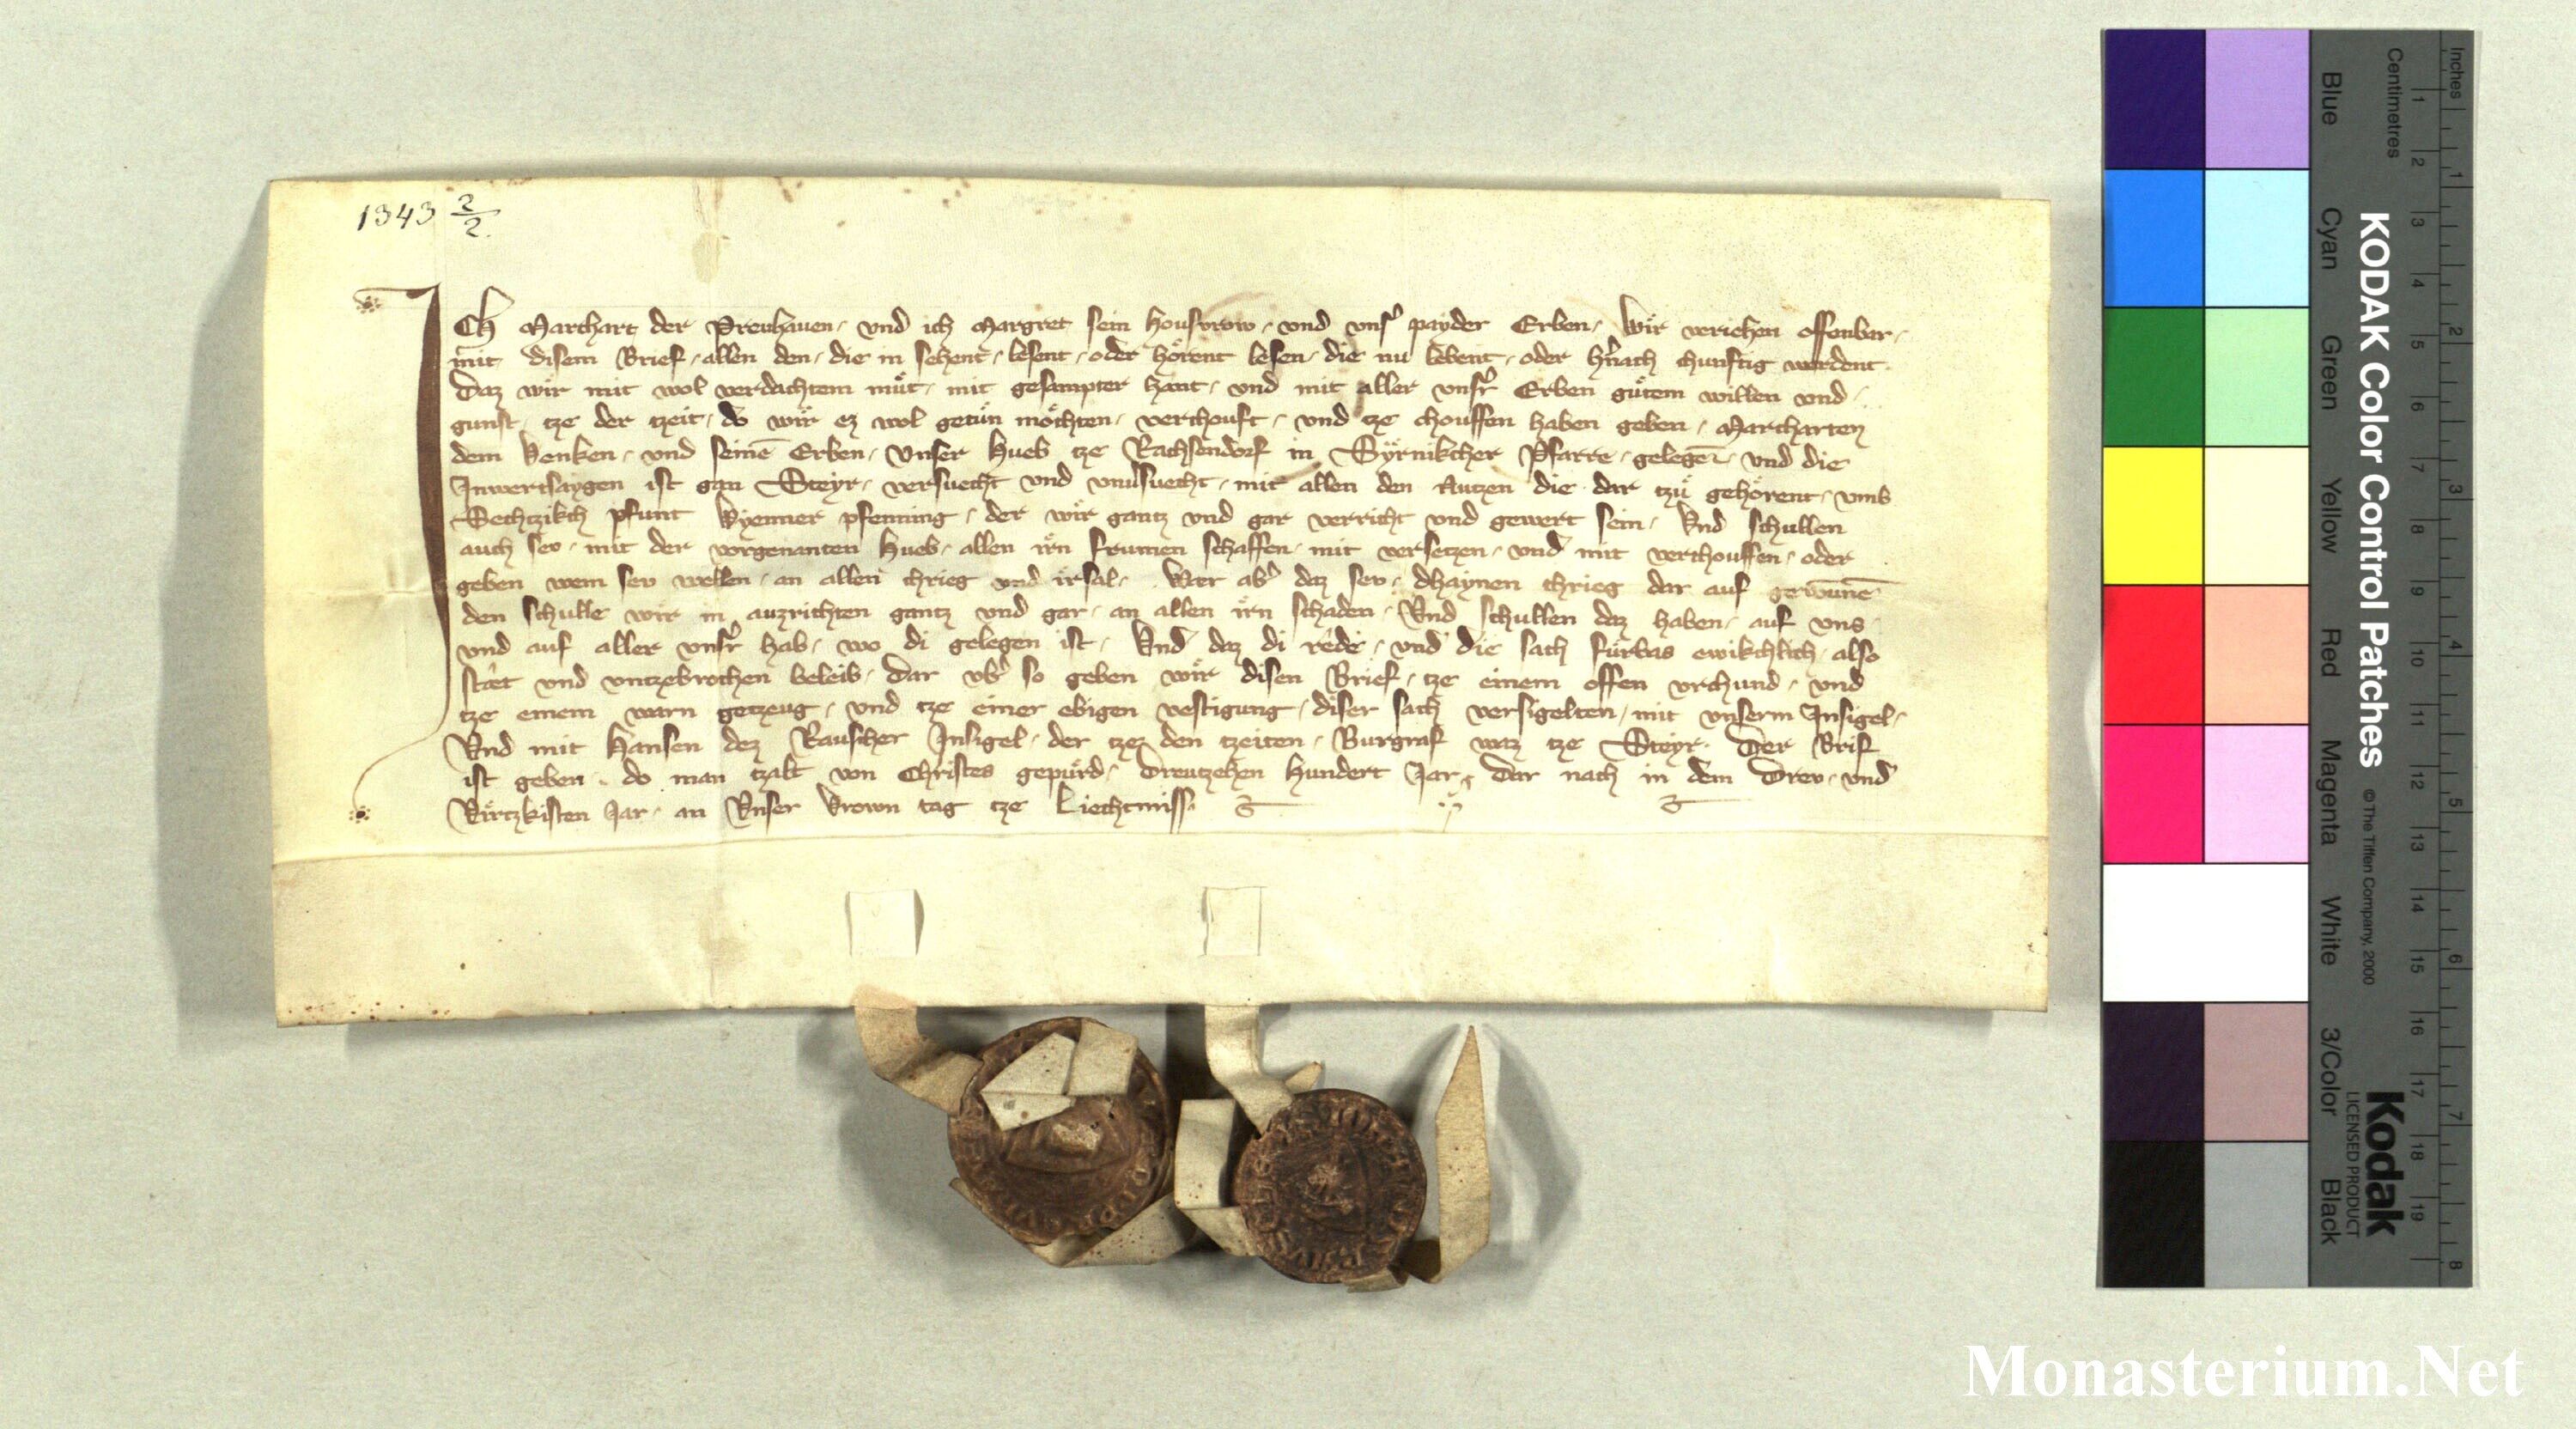 1343 2/2
ICh Marchart der Preuhauen, vnd ich Margret sein housvrow, vnd vnsˀ payder Erben, Wir veriehen offenbar,
mit disem Brief, allen den, die in sehent, lesent, oder hoͤrent lesen, die nu lebent, oder hˀnach chunftig werdent,
Daz wir mit wol verdachtem muͤt, mit gesampter hant, vnd mit aller vnsˀr Erben guͤtem willen vnd,
gunst, tze der tzeit, do wir ez wol getuͤn moͤchten, verchouft, vnd tze chouffen haben geben, Marcharten
dem Venken, vnd seinē Erben, Vnser Hueb tze Rachsendorf in Syrnikcher Pfarre, gelegē̄, vnd die
Inwertsaygen ist gan Steyr, versuecht vnd vnuˀsuecht, mit allen den Nutzen die dar tzuͤ gehoͤrent, vmb
Sechtzikch pfunt Wyenner pfenning, der wir gantz vnd gar verricht vnd gewert sein, Vnd schullen
auch sev, mit der vorgenanten Hueb, allen irn frumen schaffen, mit versetzen, vnd mit verchouffen, oder
geben wem sev wellen, an allen chrieg vnd irsal, Wer abˀ daz sev, dhaynen chrieg dar auf gewūnē
den schulle wir in auzrichten gantz vnd gar, an allen irn schaden, Vnd schullen daz haben, auf vns,
vnd auf aller vnsˀr hab, wo di gelegen ist, Vnd daz di rede, vnd die sach fuͤrbas ewikchlich, also
staͤt vnd vntzebrochen beleib, Dar vbˀ so geben wir disen Brief, tze einem offen vrchund, vnd
tze einem warn getzeug, vnd tze einer ebigen vestigung, diser sach versigelten, mit vnserm Insigel,
Vnd mit Hansen dez Rauscher Insigel, der tzez den tzeiten, Burgraf waz tze Steyr, Der Brif
ist geben, do man tzalt von Christes gepuͤrd, Dreutzehen Hundert Jar, Dar nach in dem Drev, vnd
Virtzkisten Jar, an Vnser Vrown tag tze Liechtmiss
Inches
Centimetres
1 2 3 4 5 6 7 8 9 10 11 12 13 14 15 16 17 18 19
1 2 3 4 5 6 7 8
KODAK Color Control Patches
© The Tiffen Company, 2000
Kodak
LICENSED PRODUCT
Blue Cyan Green Yellow Red Magenta White 3/Color Black
Monasterium.Net